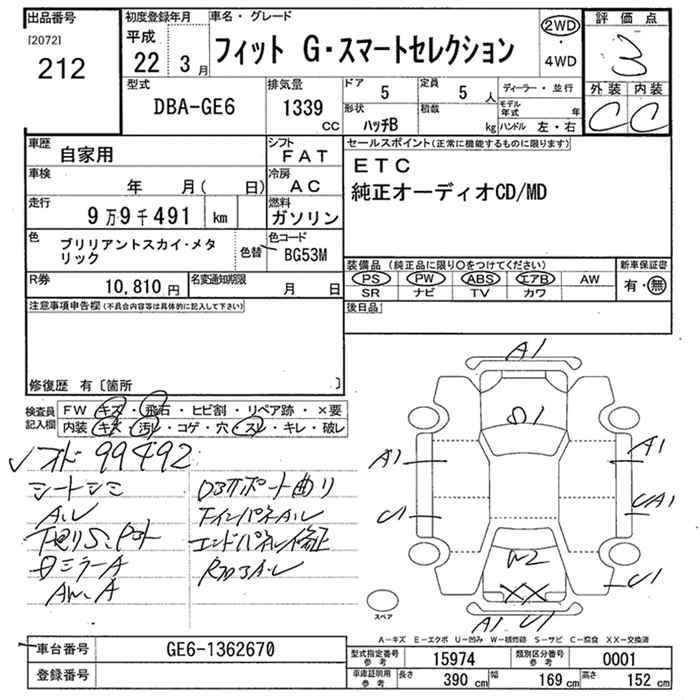 出品番号 初度登録年月 車名・グレード 評価点
[2072] 平成 2WD
212 22 3月 フィット G・スマートセレクション ・ 3
4WD
型式 排気量 ドア 定員 ディーラー・並行 外装 内装
DBA-GE6 1339 5 5 人 モデル年式 年 C C
cc 形状 ハッチB 積数 kg ハンドル 左・右
車歴 シフト セールスポイント(正常に機能するものに限ります)
自家用 FAT ETC
車検 冷房 純正オーディオCD/MD
年 月( 日) AC
走行 燃料
9万9千491 km ガソリン
色 色コード
ブリリアントスカイ・メタリック 色替 BG53M
装備品(純正品に限り○をつけてください) 新車保証書
R券 名変通知期限 PS PW ABS エアB AW 有・無
10,810円 月 日 SR ナビ TV カワ
注意事項申告欄(不具合内容等は具体的に記入して下さい) 後日品
修復歴 有〔箇所 〕
検査員記入欄 FW キズ・飛石・ヒビ割・リペア跡・×要
内装・キズ・汚レ・コゲ・穴・スレ・キレ・破レ
99492
シートシミ
下廻りS
ミラーA
エンドパネル修正
A1
A1
A1
U1
U1
A1 U1
XX
スペア
A-キズ E-エクボ U-凹み W-補修跡 S-サビ C-腐食 XX-交換済
車台番号 GE6-1362670 型式指定番号 参考 15974 類別区分番号 参考 0001
登録番号 車庫証明用 参考 長さ 390 cm 幅 169 cm 高さ 152 cm